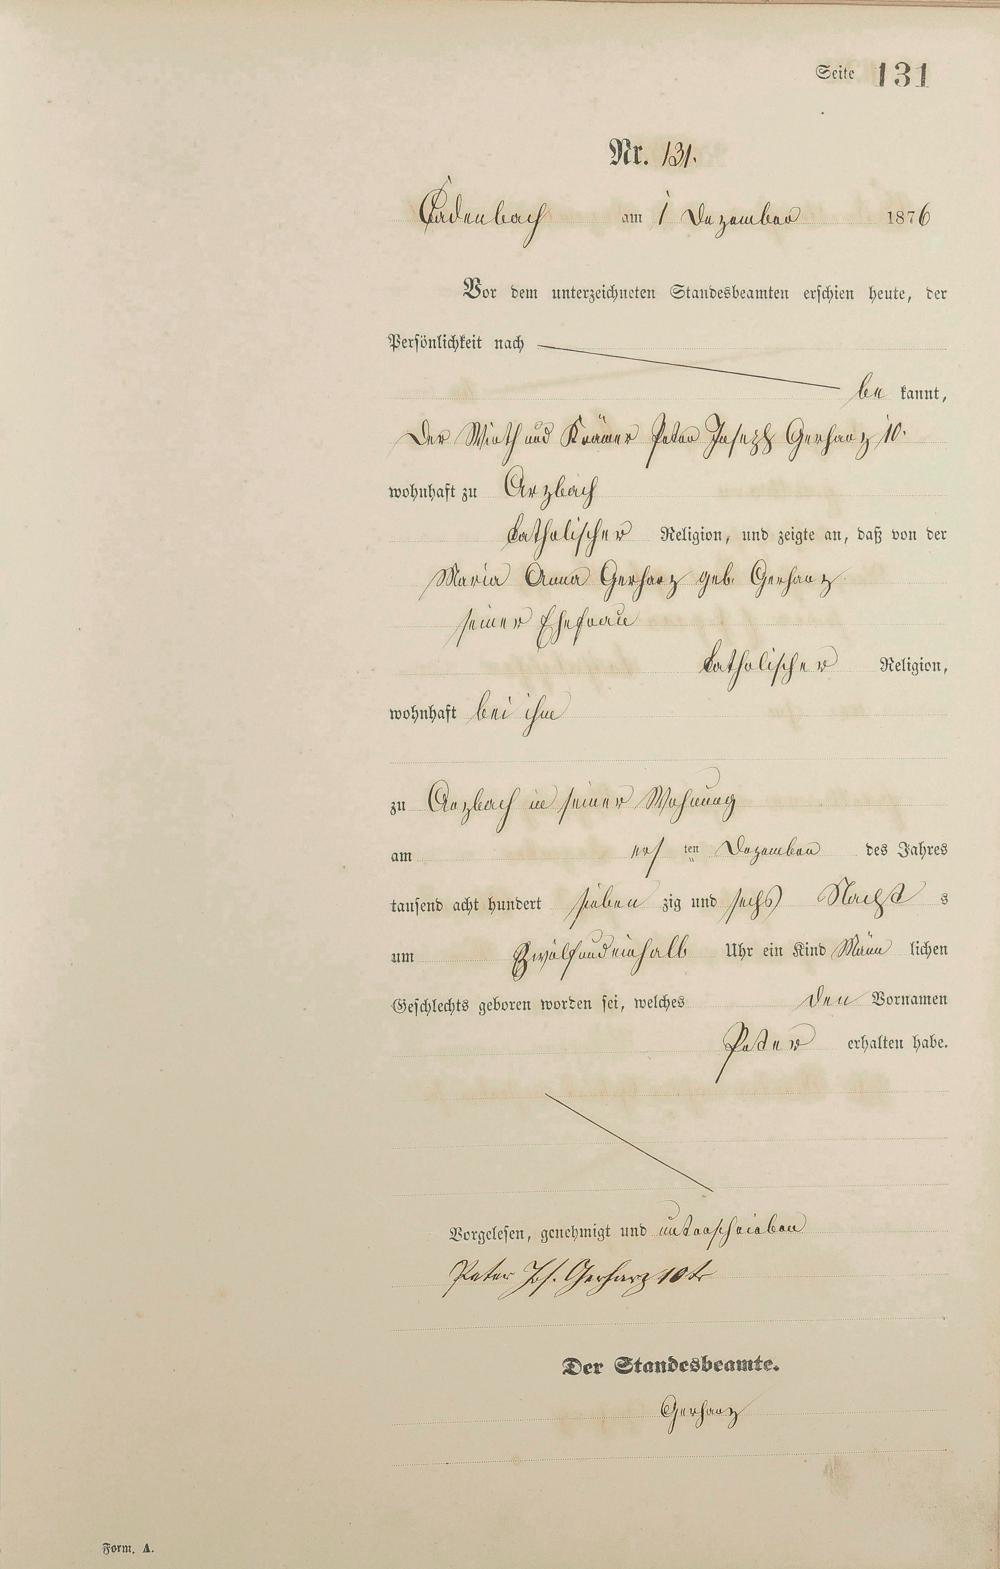 Seite 131
Nr. 131.
Cadenbach am 1 Dezember 1876
Vor dem unterzeichneten Standesbeamten erschien heute, der
Persönlichkeit nach
be kannt,
Der Wirth und Krämer Peter Joseph Gerharz 10.
wohnhaft zu Arzbach
katholischer Religion, und zeigte an, daß von der
Maria Anna Gerharz geb. Gerharz
seiner Ehefrau
katholischer Religion,
wohnhaft bei ihm
zu Arzbach in seiner Wohnung
am ers ten Dezember des Jahres
tausend acht hundert sieben zig und sechs Nacht s
um Zwölfundeinhalb Uhr ein Kind Männ lichen
Geschlechts geboren worden sei, welches den Vornamen
Peter erhalten habe.
Vorgelesen, genehmigt und unterschrieben
Peter Jos. Gerharz 10te
Der Standesbeamte.
Gerharz
Form. A.